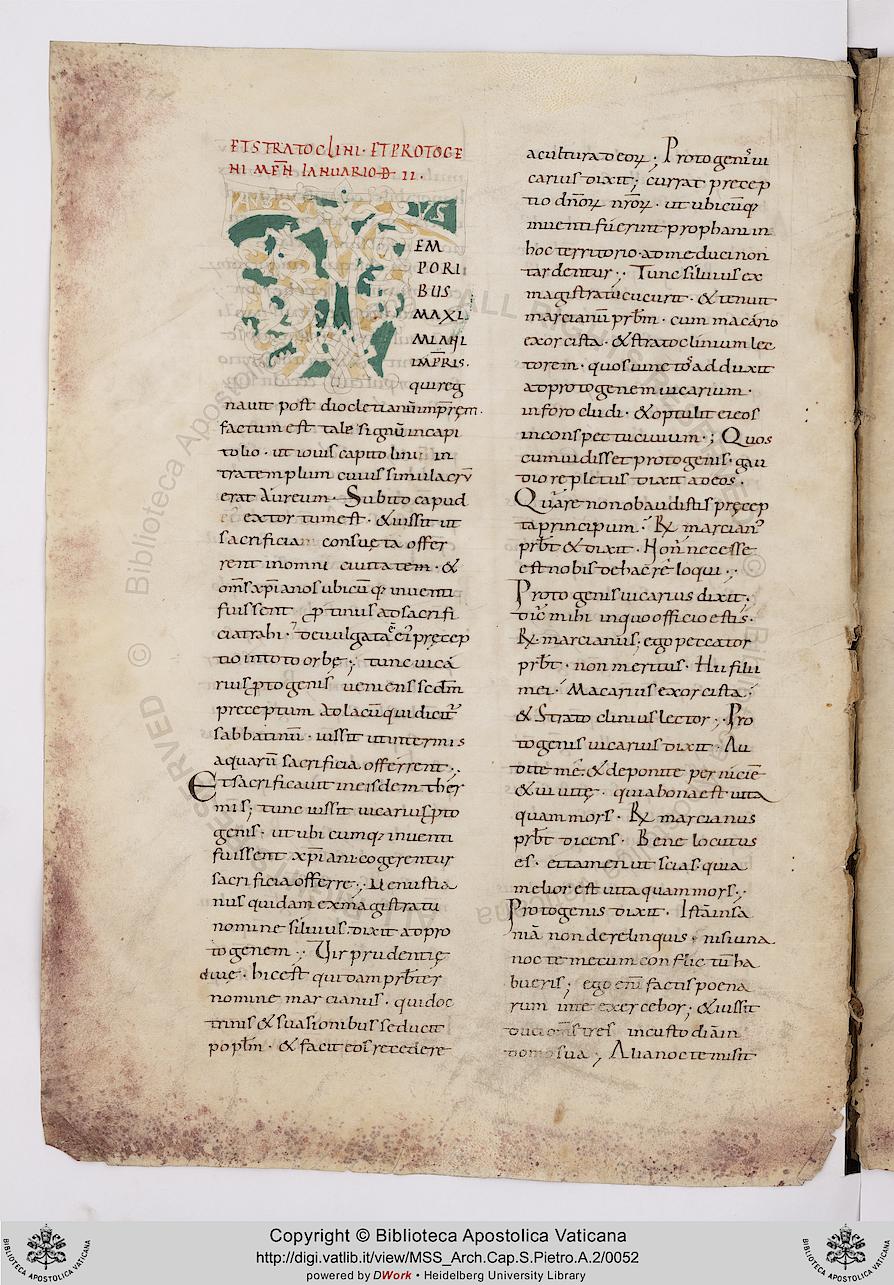 ET STRATOCLINI · ET PROTOGE
NI MEN̄ IANUARIO D II ·
US
EM
PORI
BUS
MAXI
MIANI
IMPRIS ·
qui reg
navit post diocletianū imprēm ·
factum est tale signū in capi
tolio · ut iovis capitolini in
tra templum cuius simulacrū
erat aureum · Subito capud
ei extortum est · & iussit ut
sacrificiam consueta offer
rent in omni civitatem · &
om̄s xp̄ianos ubicūq; inventi
fuissent ꝓtinus ad sacrifi
cia trahi · devulgata ei precep
tio in toto orbę ; tunc vicā
rius ꝓtogenis veniens sedm̄
preceptum ad lacū qui dicit᷑
sabbatinū · iussit ut in termis
aquarū sacrificia offerrent ·,
Et sacrificavit in eisdem ther
mis ; tunc iussit vicarius ꝓto
genis · ut ubicumq; inventi
fuissent xp̄iani cogerentur
sacrificia offerre ·, Venustia
nus quidam ex magistratu
nomine silvius dixit ad pro
togenem ·, Vir prudentię
tuę · hic est quidam prb̄ter
nomine marcianus · qui doc
trinis & suasionibus seducit
popl̄m · & facit eos recedere
a cultura deoꝝ ; Protogenis vi
carius dixit ; currat precep
tio dn̄oꝝ nr̄oꝝ · ut ubicūq;
inventi fuerint prophani in
hoc territorio · ad me duci non
tardentur ·, Tunc silvius ex
magistratu cucurrit · & tenuit
marcianū prb̄m · cum macario
exorcista · & stratoclinium lec
torem · quos iunctos adduxit
ad protogenem vicarium ·
in foro cludi · & optulit ei eos
in conspectu civium · ; Quos
cum vidisset protogenis · gau
dio repletus dixit ad eos ·
Quare non obaudistis precep
ta principum · ℞ marcian᷒
prb̄t & dixit · Non necesse
est nobis de hac re loqui ·,
Protogenis vicarius dixit ·
Dic̄ mihi in quo officio estis ·
℞ marcianus ; ego peccator
prb̄t · non meritus · Hii filii
mei · Macarius exorcista ·
& Stratoclinius lector ·, Pro
togenis vicarius dixit · Au
dite mē & deponite perniciē
& vivite · quia bona est vita
quam mors · ℞ marcianus
prb̄t dicens · Bene locutus
es · et tamen ut scias · quia
melior est vita quam mors ·,
Protogenis dixit · Istā insa
niā non derelinquis · nisi una
nocte mecum conflictū ha
bueris ; ego enī factis poena
rum in te exercebor ; & iussit
duci om̄s tres in custodiā in
domo sua ; Alia nocte misit
Copyright © Biblioteca Apostolica Vaticana
http://digi.vatlib.it/view/MSS_Arch.Cap.S.Pietro.A.2/0052
powered by DWork • Heidelberg University Library